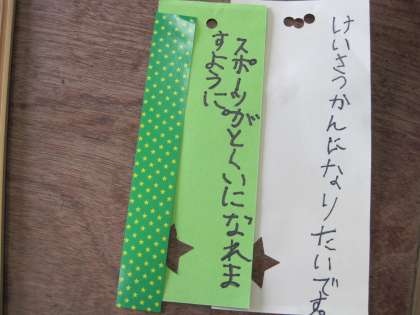 けいさつかんになりたいです。
スポーツがとくいになれま
すように。